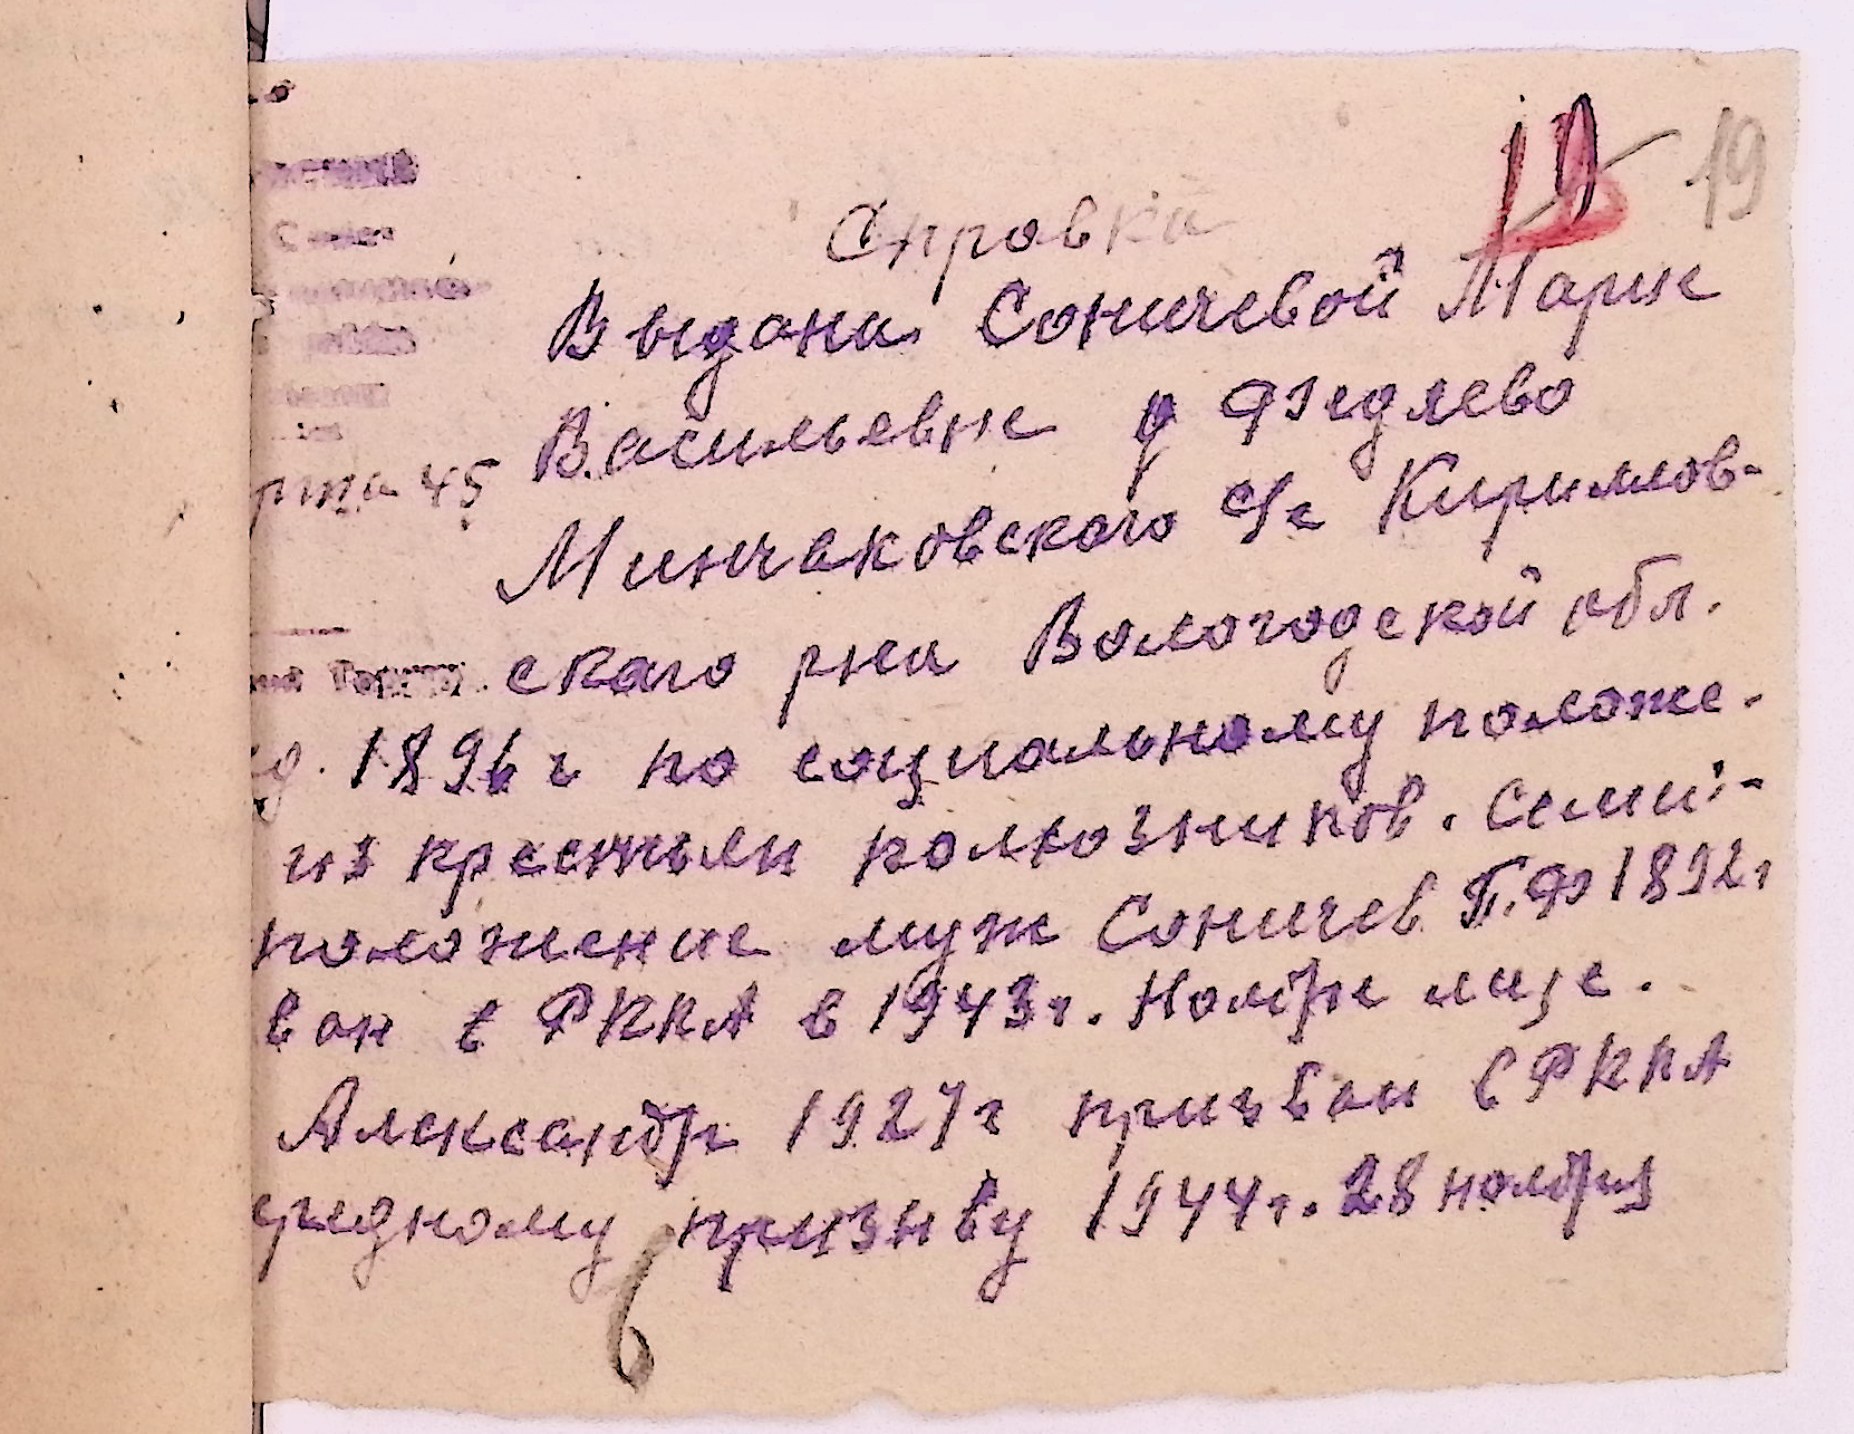 19 19
Справка
Выдана Соничевой Марие
Васильевне д Фгедлево
Минчаковского С/с Кириллов-
рта 45
ского рна Вологодской обл.
д. 1896 г по социальному положе-
из крестьян колхозников. Семий-
положение муж Соничев П.Ф 1892г
ван в РККА в 1943г. Ноябре месе.
Александр 1927г призван в РККА
редному призыву 1944г. 28 ноября
6